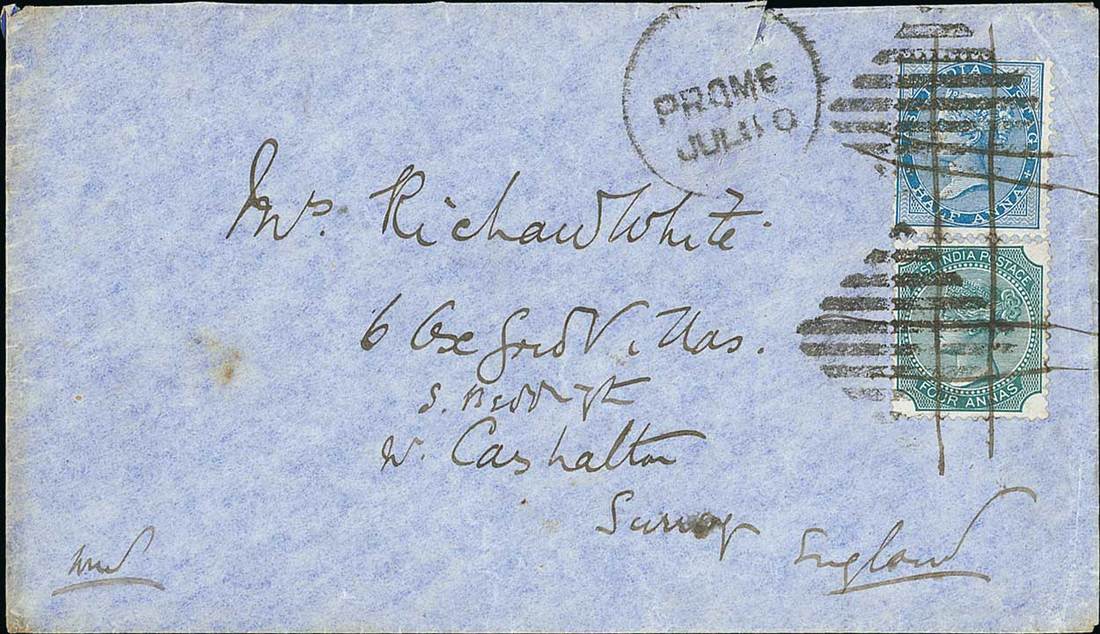 PROME
JUL 10
EAST INDIA POSTAGE
HALF ANNA
EAST INDIA POSTAGE
FOUR ANNAS
Mrs. Richard White
6 Oxford Villas.
S. Beddingt
n. Cashalton
Surrey
England